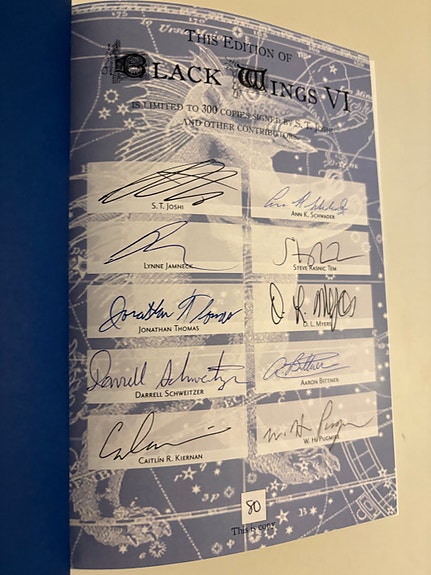 This Edition of
Black Wings VI
is limited to 300 copies signed by S. T. Joshi
and other contributors
S. T. Joshi
Ann K. Schwader
Lynne Jamneck
Steve Rasnic Tem
Jonathan Thomas
Jonathan Thomas
D. L. Myers
D. L. Myers
Darrell Schweitzer
Darrell Schweitzer
A Bittner
Aaron Bittner
Caitlín R. Kiernan
W. H. Pugmire
80
This is copy